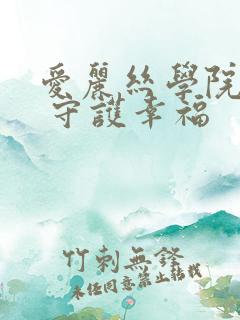 愛麗絲學院
守護幸福
竹刺無鋒
未經同意禁止轉載